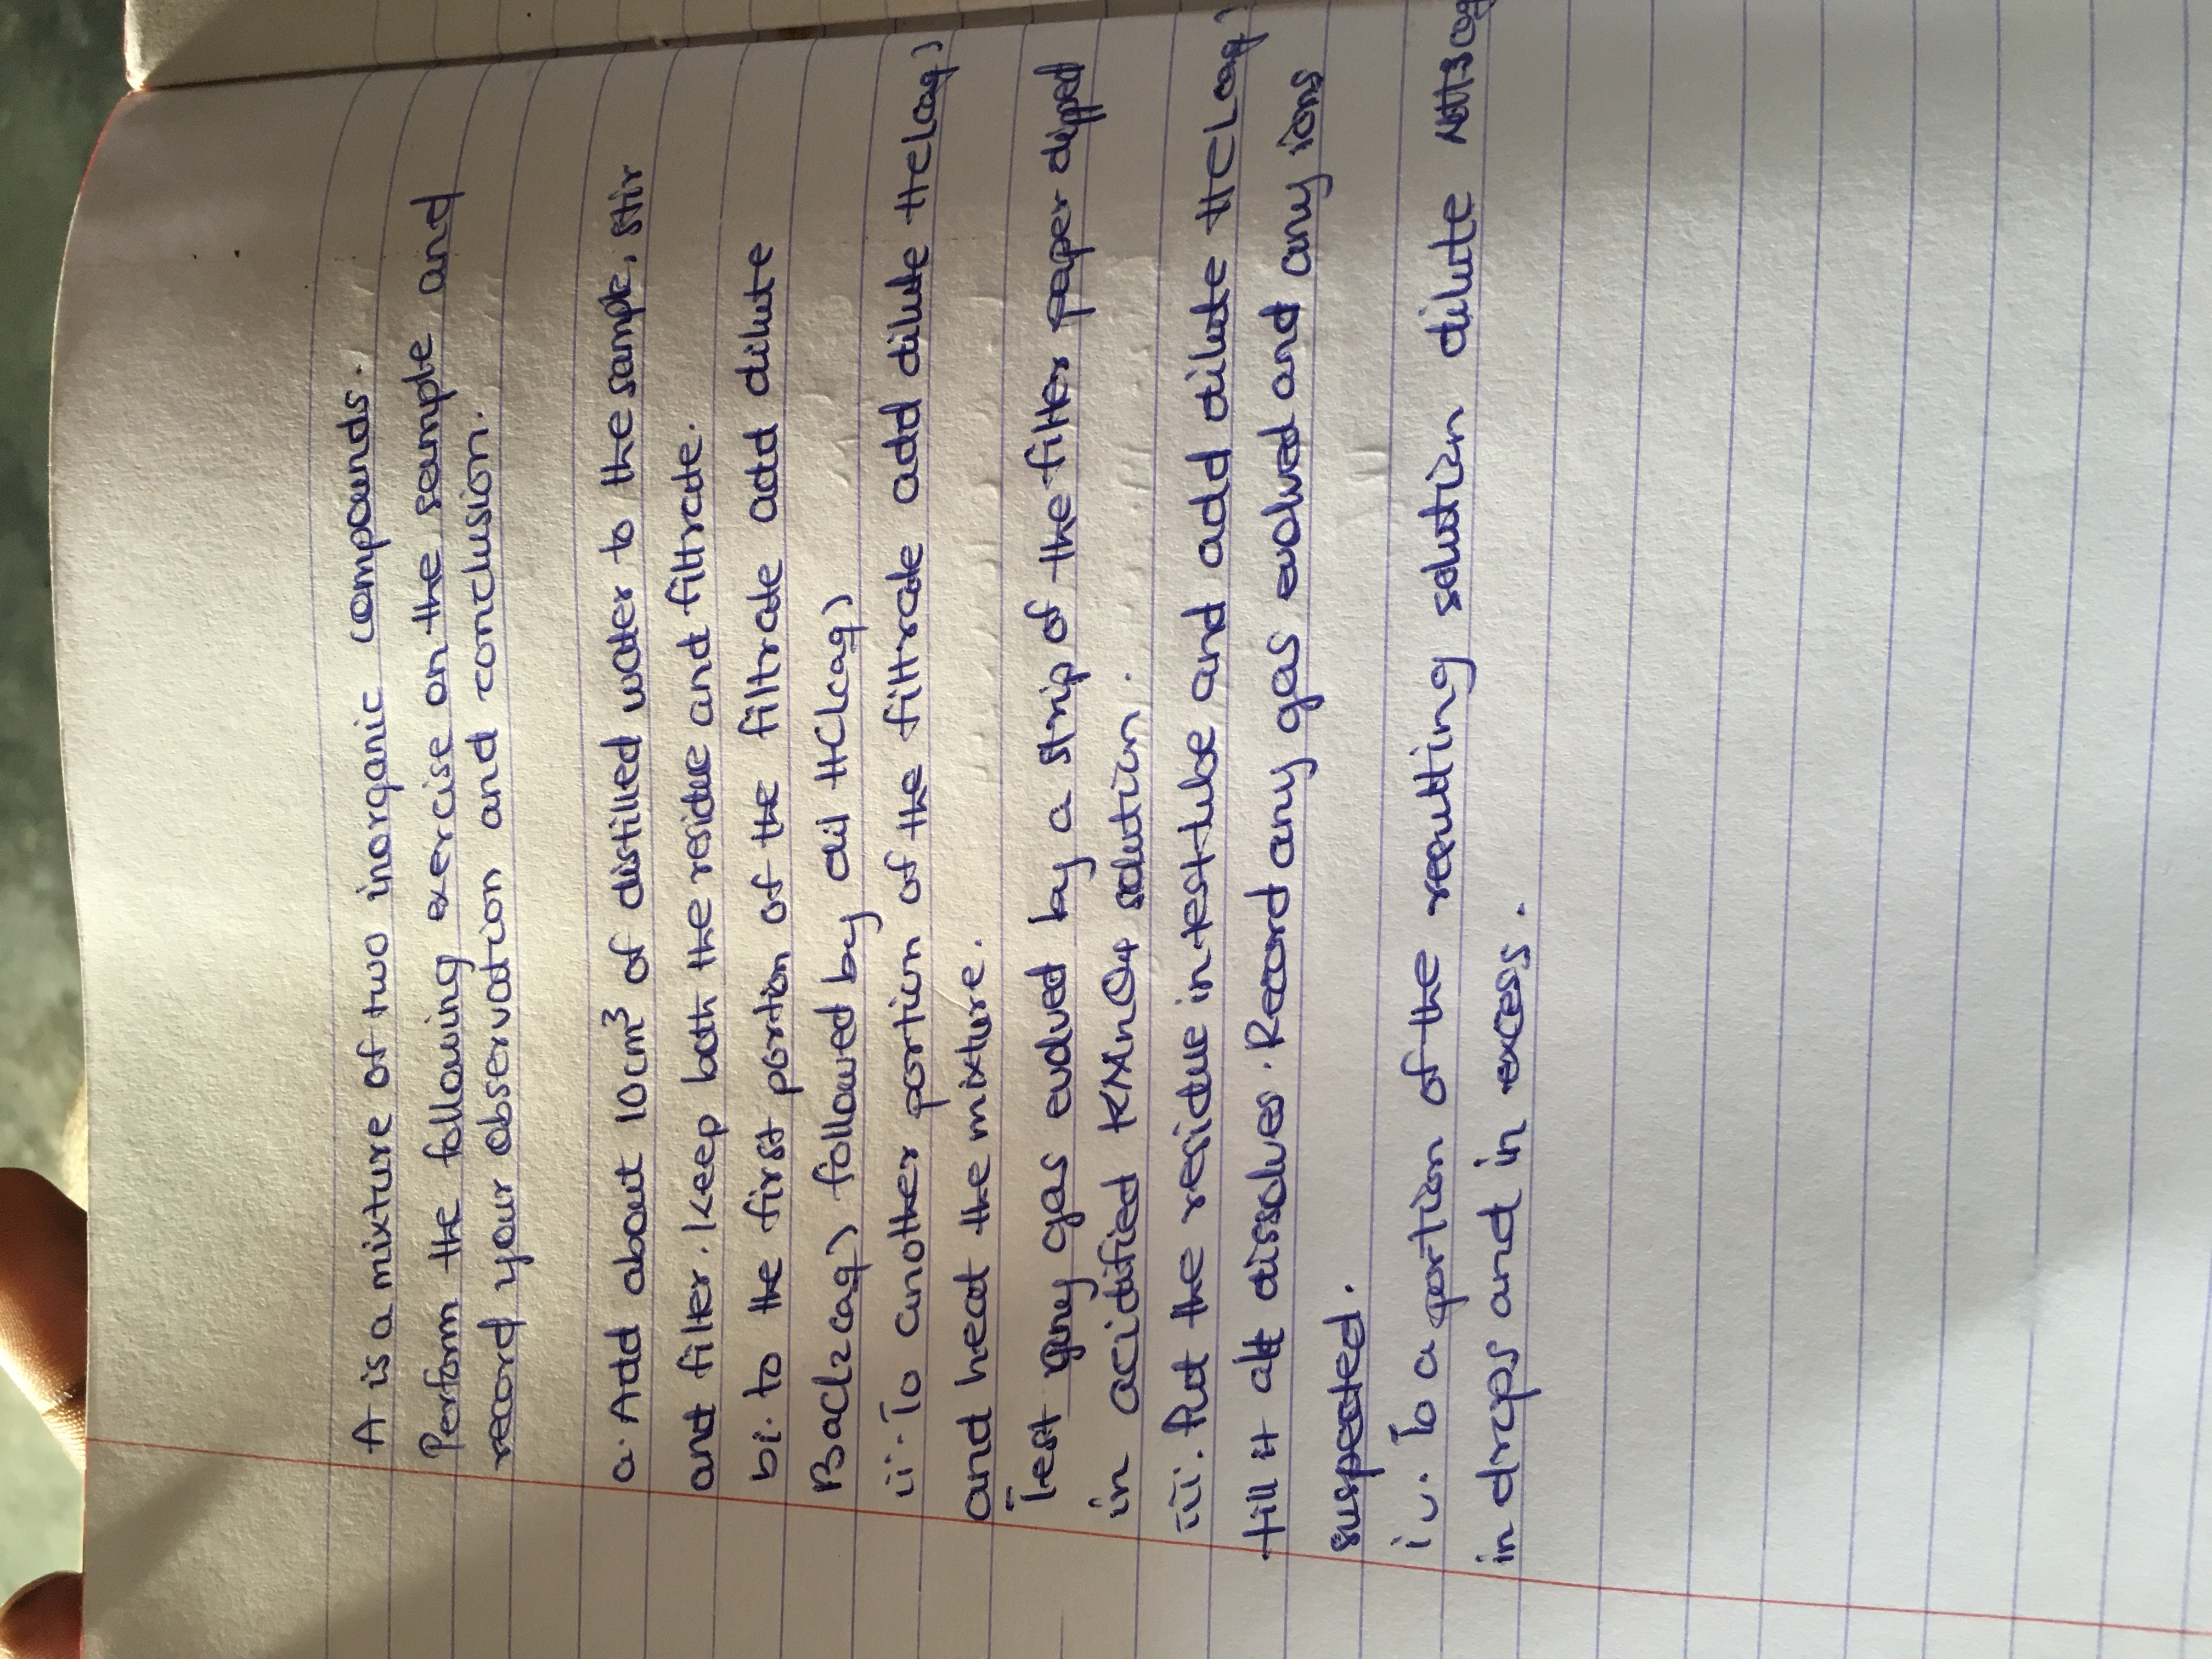 A is a mixture of two inorganic compounds.
Perform the following exercise on the sample and
record your observation and conclusion.
a. Add about 10cm³ of distilled water to the sample, stir
and filter. Keep both the residue and filtrate.
bi. to the first portion of the filtrate add dilute
BaCl2(aq) followed by dil HCl(aq)
ii. To another portion of the filtrate add dilute HCl(aq)
and heat the mixture.
Test any gas evolved by a strip of the filter paper dipped
in acidified KMnO4 solution.
iii. Put the residue in test-tube and add dilute HCl(aq)
till it all dissolves. Record any gas evolved and any ions
suspected.
iv. To a portion of the resulting solution dilute NH3(aq
in drops and in excess.